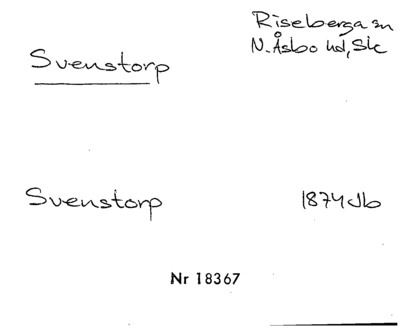 Riseberga sn
N. Åsbo hd, Sk
Svenstorp
Svenstorp 1874 Jb
Nr 18367